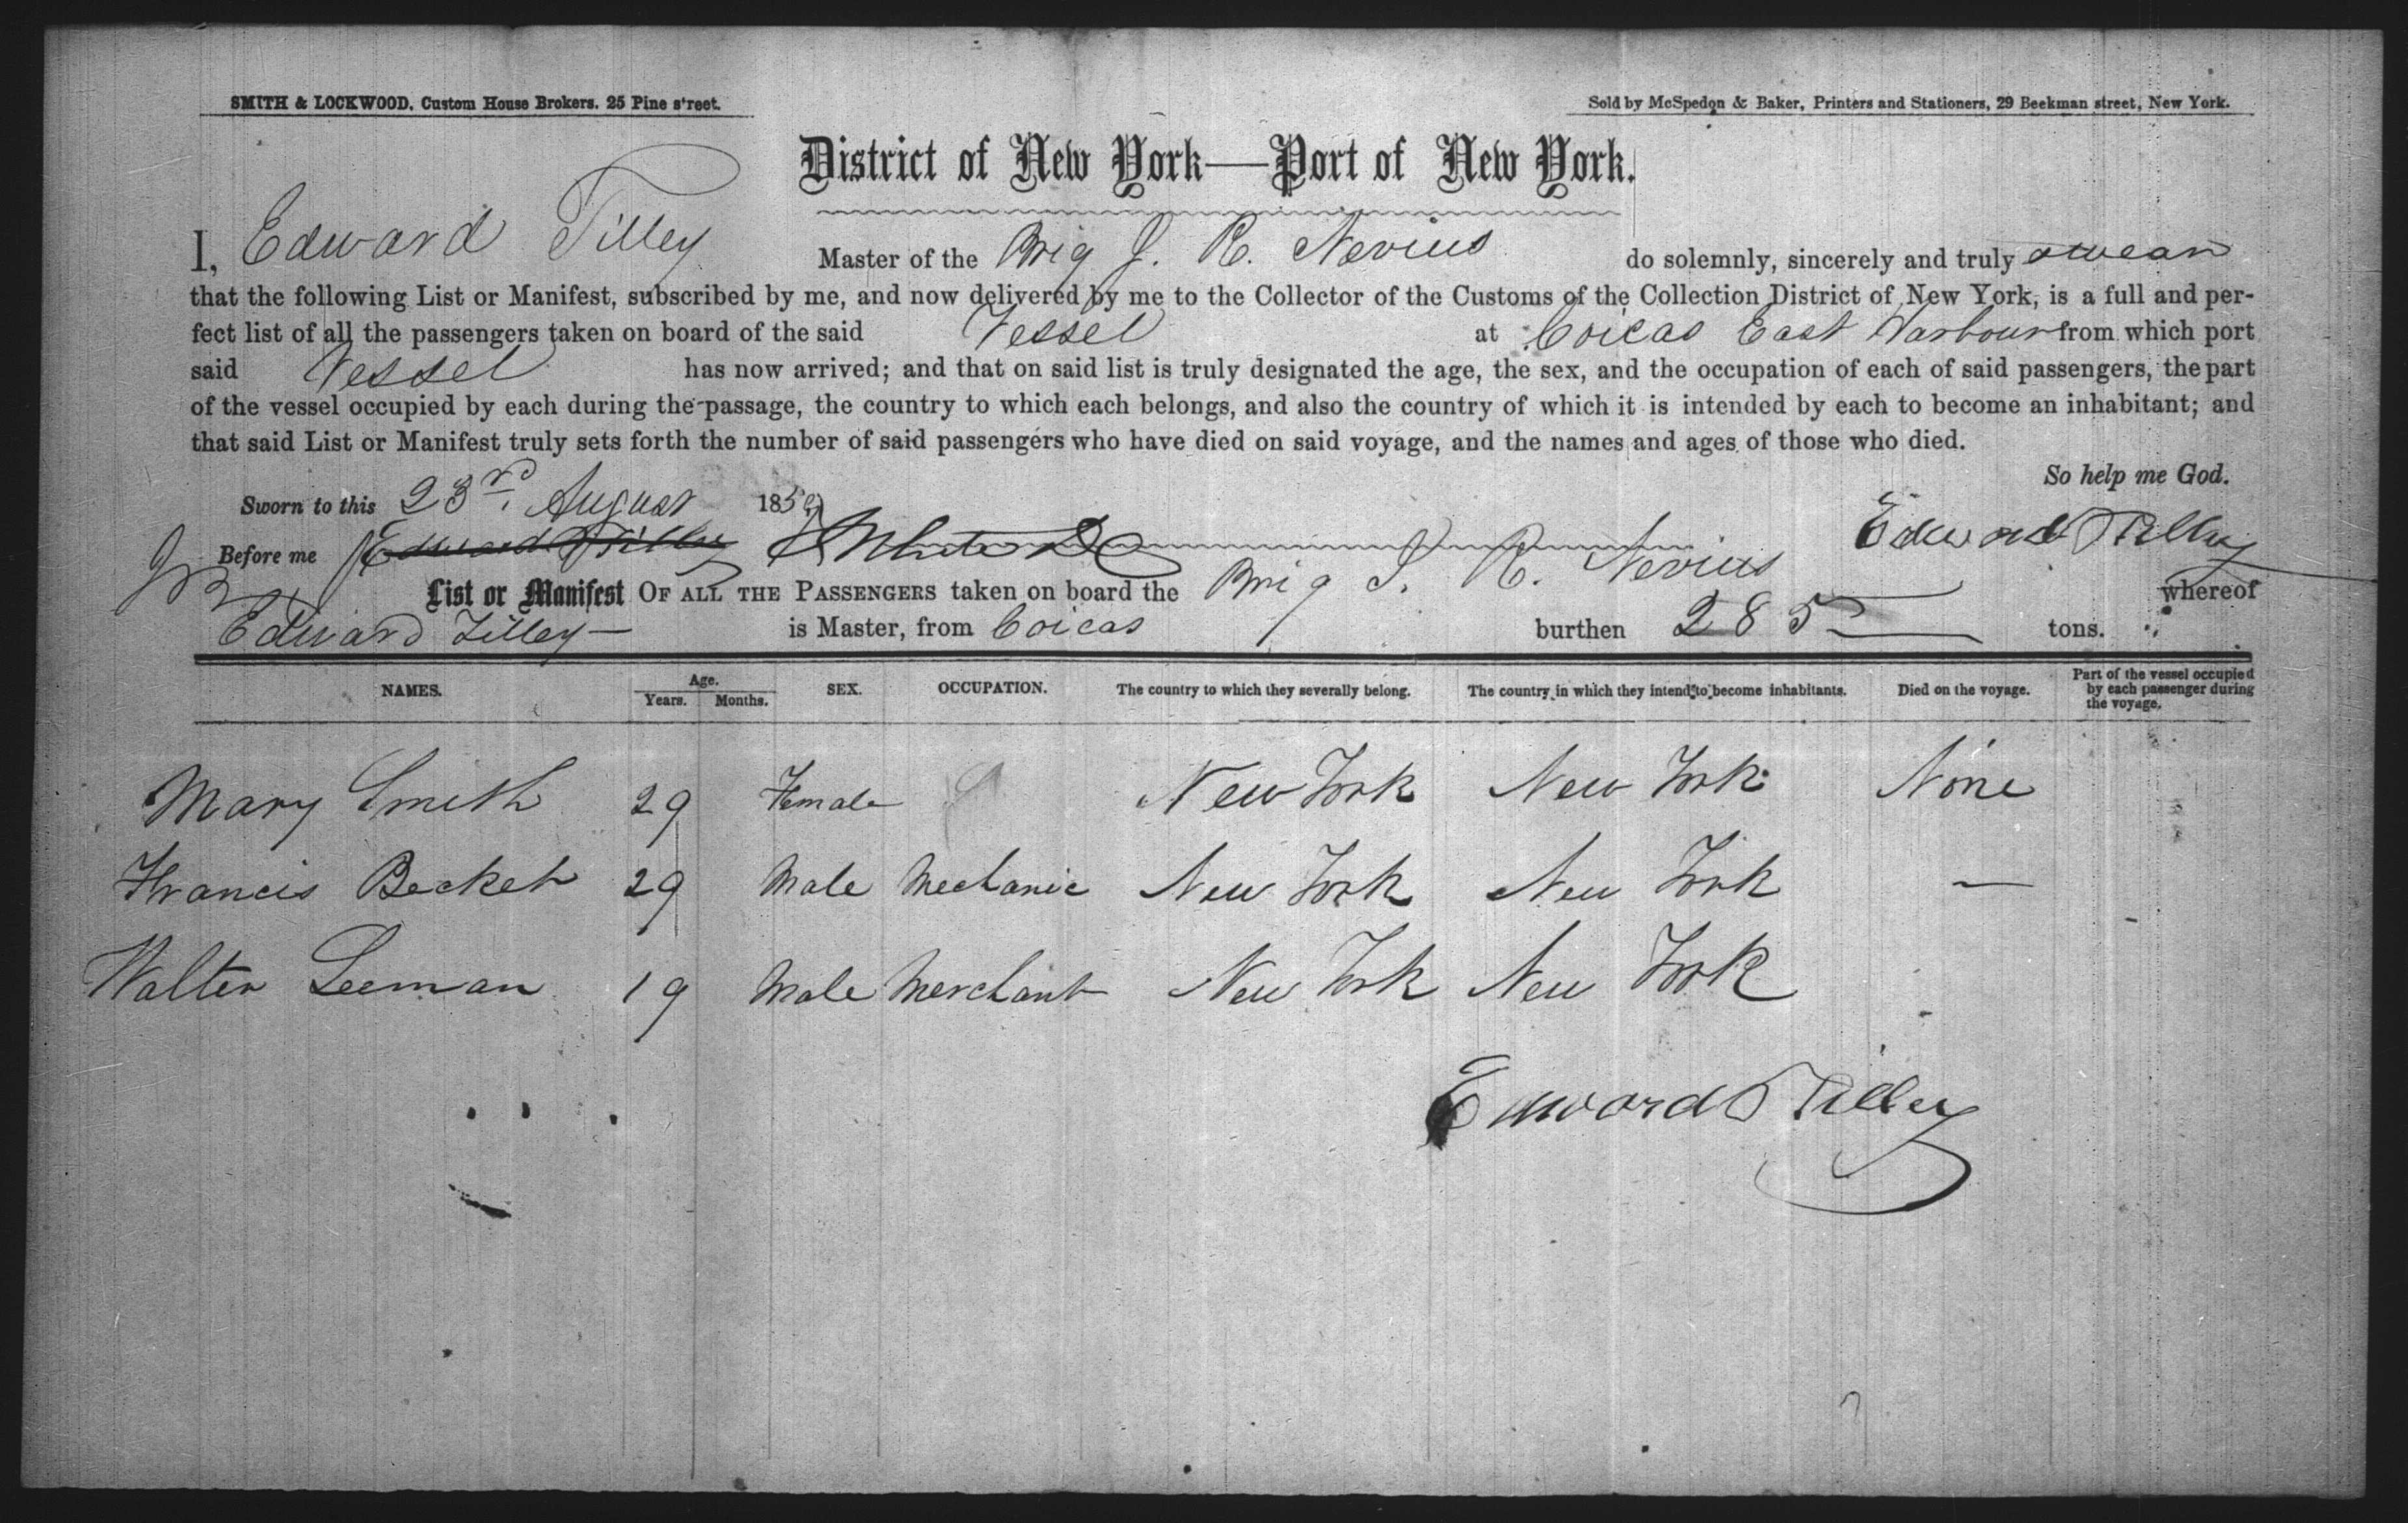 SMITH & LOCKWOOD. Custom House Brokers. 25 Pine s'reet.
Sold by McSpedon & Baker, Printers and Stationers, 29 Beekman street, New York.
District of New York—Port of New York.
I, Edward Tilley Master of the Brig J. R. Nevius do solemnly, sincerely and truly swear
that the following List or Manifest, subscribed by me, and now delivered by me to the Collector of the Customs of the Collection District of New York, is a full and per-
fect list of all the passengers taken on board of the said Vessel at Coicas East Harbour from which port
said Vessel has now arrived; and that on said list is truly designated the age, the sex, and the occupation of each of said passengers, the part
of the vessel occupied by each during the passage, the country to which each belongs, and also the country of which it is intended by each to become an inhabitant; and
that said List or Manifest truly sets forth the number of said passengers who have died on said voyage, and the names and ages of those who died.
So help me God.
Sworn to this 23rd. August 1859
Before me Edward Tilley Edward Tilley
List or Manifest OF ALL THE PASSENGERS taken on board the Brig J. R. Nevius whereof
Edward Tilley — is Master, from Coicas burthen 285 tons.
NAMES. Age. Years. Months. SEX. OCCUPATION. The country to which they severally belong. The country in which they intend to become inhabitants. Died on the voyage. Part of the vessel occupied by each passenger during the voyage.
Mary Smith 29 Female New York New York None
Francis Becket 29 Male Mechanic New York New York —
Walter Leeman 19 Male Merchant New York New York
Edward Tilley